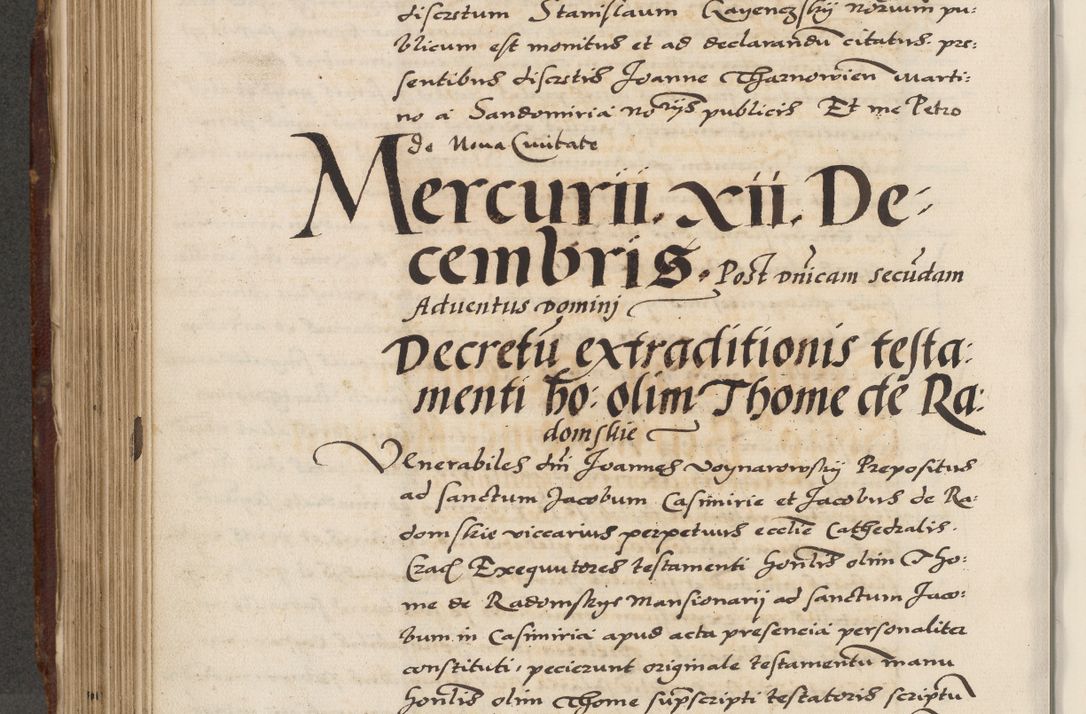 discretum Stanislaum Gayenczskij notarium pu:
blicum est monitus et ad declarandũ citatus. pre:
sentibus discretis Joanne Tharnowien̄ Marti-
no a Sandomiria notiis publicis Et me Petro
de Noua Ciuitate
Mercurii. xii. De-
cembris. Post dñicam secũdam
Aduentus dominj
Decretũ extraditionis testa:
menti ho: olim Thome de Ra:
domskie
Venerabiles dñi Joannes Voynarowskij Prepositus
ad sanctum Jacobum Casimirie et Jacobus de Ra-
domskie viccarius perpetuus ecclie Cathedralis.
Crac̄ Exequutores testamenti honlis olim Tho-
me de Radomskye Mansionarij ad sanctum Jaco-
bum in Casimiria apud acta presencia personaliter
constituti, pecierunt originale testamentũ manu
honlis olim Thome sup̄scripti testatoris scriptũ